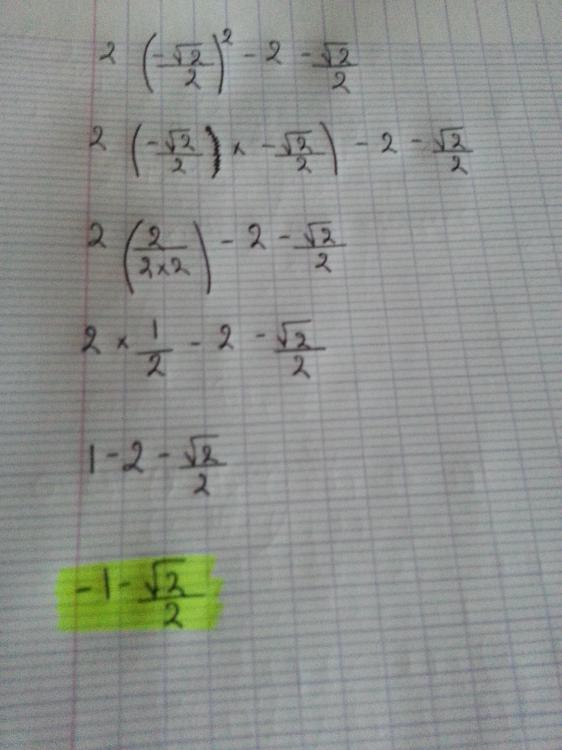 2 (-√2/2)² - 2 - √2/2
2 (-√2/2) × -√2/2) - 2 - √2/2
2 (2/2×2) - 2 - √2/2
2 × 1/2 - 2 - √2/2
1 - 2 - √2/2
-1 - √2/2